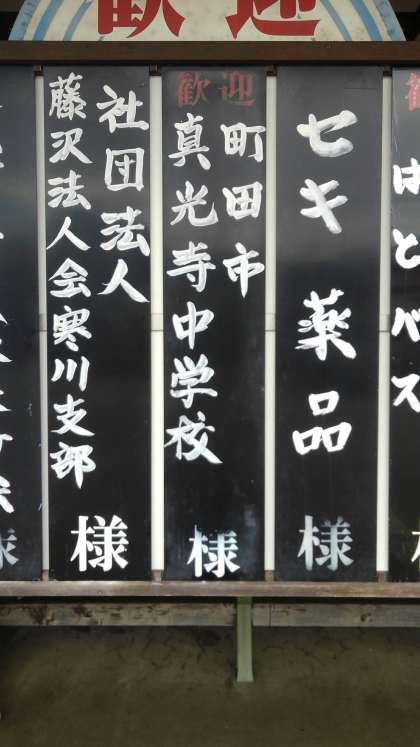 歓迎
はとバス
セキ薬品
様
歓迎
町田市
真光寺中学校
様
社団法人
藤沢法人会寒川支部
様